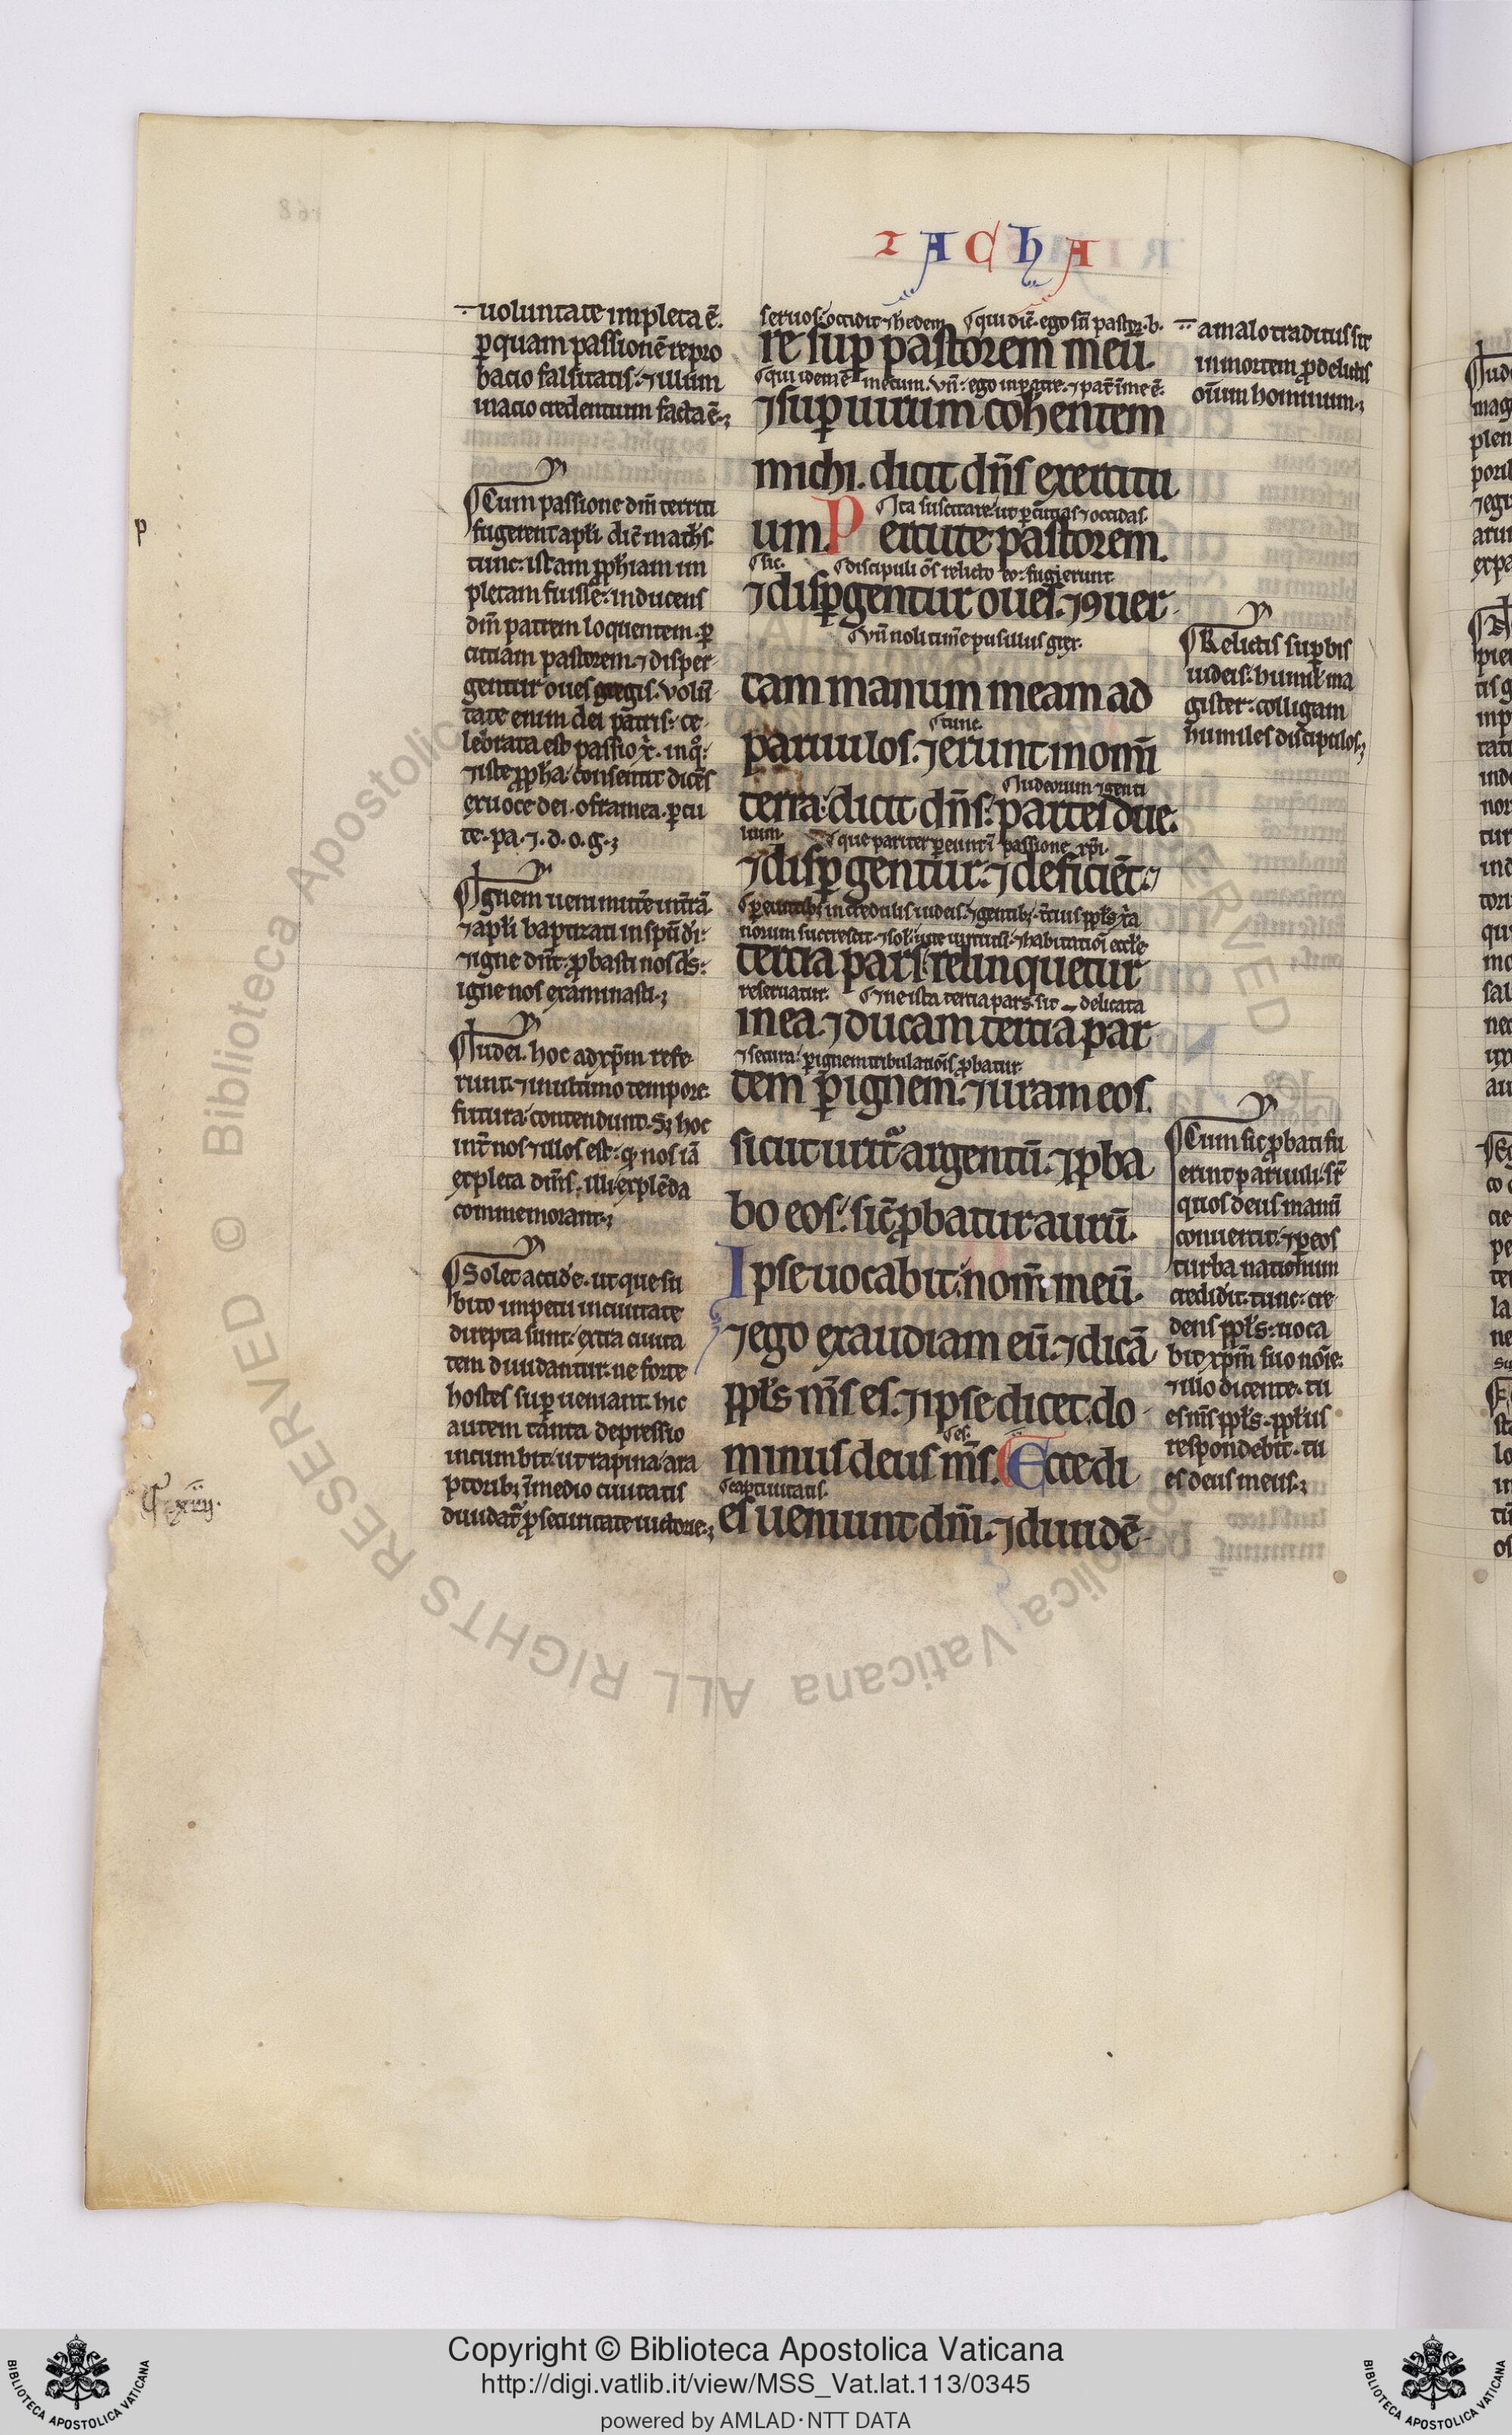 ZACHA
uoluntate impleta ē.
ꝑ quam passionē repro
bacio falsitatis: ⁊ illum
inacio credentium facta ē.;
Cum passione dn̄i territi
fugerent apl̄i dic̄ math̄s.
tunc: istam ꝓph̄iam im
pletam fuisse: inducens
dn̄m patrem loquentem. ꝑ
cutiam pastorem. ⁊ disper
gentur oues gregis. Volū
tate enim dei patris: ce
lebrata est passio xp̄i. in qͦ:
⁊ iste ꝓph̄a consentit dicēs
ex uoce dei. o framea. ꝑcu
te. pa. ⁊. d. o. g.;
Ignem ueni mittē in t̄rā.
⁊ apl̄i baptizati in spū di:
⁊ igne dn̄t: ꝓbasti nos d̄s:
igne nos examinasti.;
Iudei. hoc ad xp̄m refe
runt. ⁊ in ultimo tempore
futura contendunt. Sꝫ hoc
int̄ nos ⁊ illos est: qꝫ nos iā
expleta dim̄s. illi explēda
commemorant.;
Solet accidē. ut que su
bito impetu in ciuitate
direpta sunt: extra ciuita
tem diuidantur: ne forte
hostes suꝑ ueniant. hic
autem tanta depressio
incumbit: ut rapina a ra
ptoribꝫ ī medio ciuitatis
diuidat̃ ꝓ securitate uictorie.;
seruos: occidit ⁊ hedem qui dic̄. ego sū pastor. b.
re suꝑ pastorem meū.
qui idem ē mecum. Vn̄: ego in patre. ⁊ pat̄ ī me ē.
⁊ suꝑ uirum coh̄entem
michi. dicit dn̄s exercitu
Ita suscitare: ut ꝑcutias ⁊ occidas.
um. Percute pastorem.
sic. discipuli ōs relicto eo: fugierunt
⁊ disꝑgentur oues. ⁊ ꝯuer
Vn̄ noli timē pusillus grex.
tam manum meam ad
tunc.
paruulos. ⁊ erunt in om̄i
Iudeorum ⁊ genti
terra: dicit dn̄s: partes due.
lium. que pariter ꝑeunt ī passione xp̄i.
⁊ disꝑgentur. ⁊ deficiēt. ⁊
ꝑeuntibꝫ incredulis iudeis. ⁊ gentibꝫ. t̄cius ppl̄s xp̄ia
norum succrescit. ⁊ sol: iure uirtuti. ⁊ habitatiōi eccl̄e
tertia pars relinquetur
reseruatur. ⁊ ne ista tertia pars. sit delicata
in ea. ⁊ ducam tertiā par
⁊ secura: ꝑ ignem tribulatiōis ꝓbatur.
tem ꝑ ignem. ⁊ uram eos
sicut urit̃ argentū. ⁊ ꝓba
bo eos: sic̄ ꝓbatur aurū.
Ipse uocabit: nom̄ meū.
⁊ ego exaudiam eū. ⁊ dicā
ppl̄s m̄s es. ⁊ ipse dicet. do
es.
minus deus m̄s. Ecce di
captiuitatis.
es ueniunt dn̄i. ⁊ diuidē
a malo traditus sit
in mortem ꝓ delictis
oīum hominum.;
Relictis suꝑbis
iudeis: humil̄ ma
gister: colligam
humiles discipulos.;
Cum sic ꝓbati fu
erint paruuli. sr̄
quos deus manū
conuertit: ⁊ ꝑ eos
turba nationum
credidit: tunc: cre
dens ppl̄s: uoca
bit xp̄m suo noīe:
⁊ illo dicente. tu
es m̄s ppl̄s. ppl̄ us
respondebit. tu
es deus meus.;
p
C. xiiii.
Copyright © Biblioteca Apostolica Vaticana
http://digi.vatlib.it/view/MSS_Vat.lat.113/0345
powered by AMLAD·NTT DATA
BIBLIOTECA APOSTOLICA VATICANA
BIBLIOTECA APOSTOLICA VATICANA